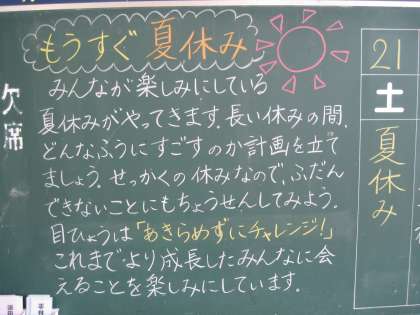 もうすぐ 夏休み
みんなが楽しみにしている
夏休みがやってきます。長い休みの間、
どんなふうにすごすのか計画を立て
ましょう。せっかくの休みなので、ふだん
できないことにもちょうせんしてみよう。
目ひょうは「あきらめずにチャレンジ!」
これまでより成長したみんなに会
えることを楽しみにしています。
21
土
夏休み
欠席